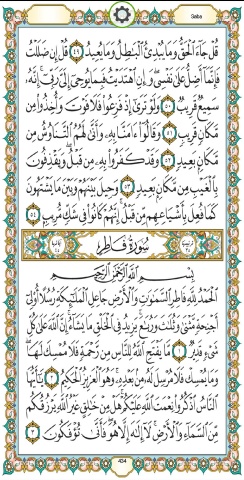 Saba
قُلْ جَآءَ ٱلْحَقُّ وَمَا يُبْدِئُ ٱلْبَٰطِلُ وَمَا يُعِيدُ ٤٩ قُلْ إِن ضَلَلْتُ
فَإِنَّمَآ أَضِلُّ عَلَىٰ نَفْسِى وَإِنِ ٱهْتَدَيْتُ فَبِمَا يُوحِىٓ إِلَىَّ رَبِّىٓ إِنَّهُۥ
سَمِيعٌ قَرِيبٌ ٥٠ وَلَوْ تَرَىٰٓ إِذْ فَزِعُوا۟ فَلَا فَوْتَ وَأُخِذُوا۟ مِن
مَّكَانٍ قَرِيبٍ ٥١ وَقَالُوٓا۟ ءَامَنَّا بِهِۦ وَأَنَّىٰ لَهُمُ ٱلتَّنَاوُشُ مِن
مَّكَانٍۭ بَعِيدٍ ٥٢ وَقَدْ كَفَرُوا۟ بِهِۦ مِن قَبْلُ وَيَقْذِفُونَ
بِٱلْغَيْبِ مِن مَّكَانٍۭ بَعِيدٍ ٥٣ وَحِيلَ بَيْنَهُمْ وَبَيْنَ مَا يَشْتَهُونَ
كَمَا فُعِلَ بِأَشْيَاعِهِم مِّن قَبْلُ إِنَّهُمْ كَانُوا۟ فِى شَكٍّ مُّرِيبٍۭ ٥٤
سُورَةُ فَاطِرٍ
بِسْمِ ٱللَّهِ ٱلرَّحْمَٰنِ ٱلرَّحِيمِ
ٱلْحَمْدُ لِلَّهِ فَاطِرِ ٱلسَّمَٰوَٰتِ وَٱلْأَرْضِ جَاعِلِ ٱلْمَلَٰٓئِكَةِ رُسُلًا أُو۟لِىٓ
أَجْنِحَةٍ مَّثْنَىٰ وَثُلَٰثَ وَرُبَٰعَ يَزِيدُ فِى ٱلْخَلْقِ مَا يَشَآءُ إِنَّ ٱللَّهَ عَلَىٰ كُلِّ
شَىْءٍ قَدِيرٌ ١ مَّا يَفْتَحِ ٱللَّهُ لِلنَّاسِ مِن رَّحْمَةٍ فَلَا مُمْسِكَ لَهَا
وَمَا يُمْسِكْ فَلَا مُرْسِلَ لَهُۥ مِنۢ بَعْدِهِۦ وَهُوَ ٱلْعَزِيزُ ٱلْحَكِيمُ ٢ يَٰٓأَيُّهَا
ٱلنَّاسُ ٱذْكُرُوا۟ نِعْمَتَ ٱللَّهِ عَلَيْكُمْ هَلْ مِنْ خَٰلِقٍ غَيْرُ ٱللَّهِ يَرْزُقُكُم
مِّنَ ٱلسَّمَآءِ وَٱلْأَرْضِ لَآ إِلَٰهَ إِلَّا هُوَ فَأَنَّىٰ تُؤْفَكُونَ ٣
434